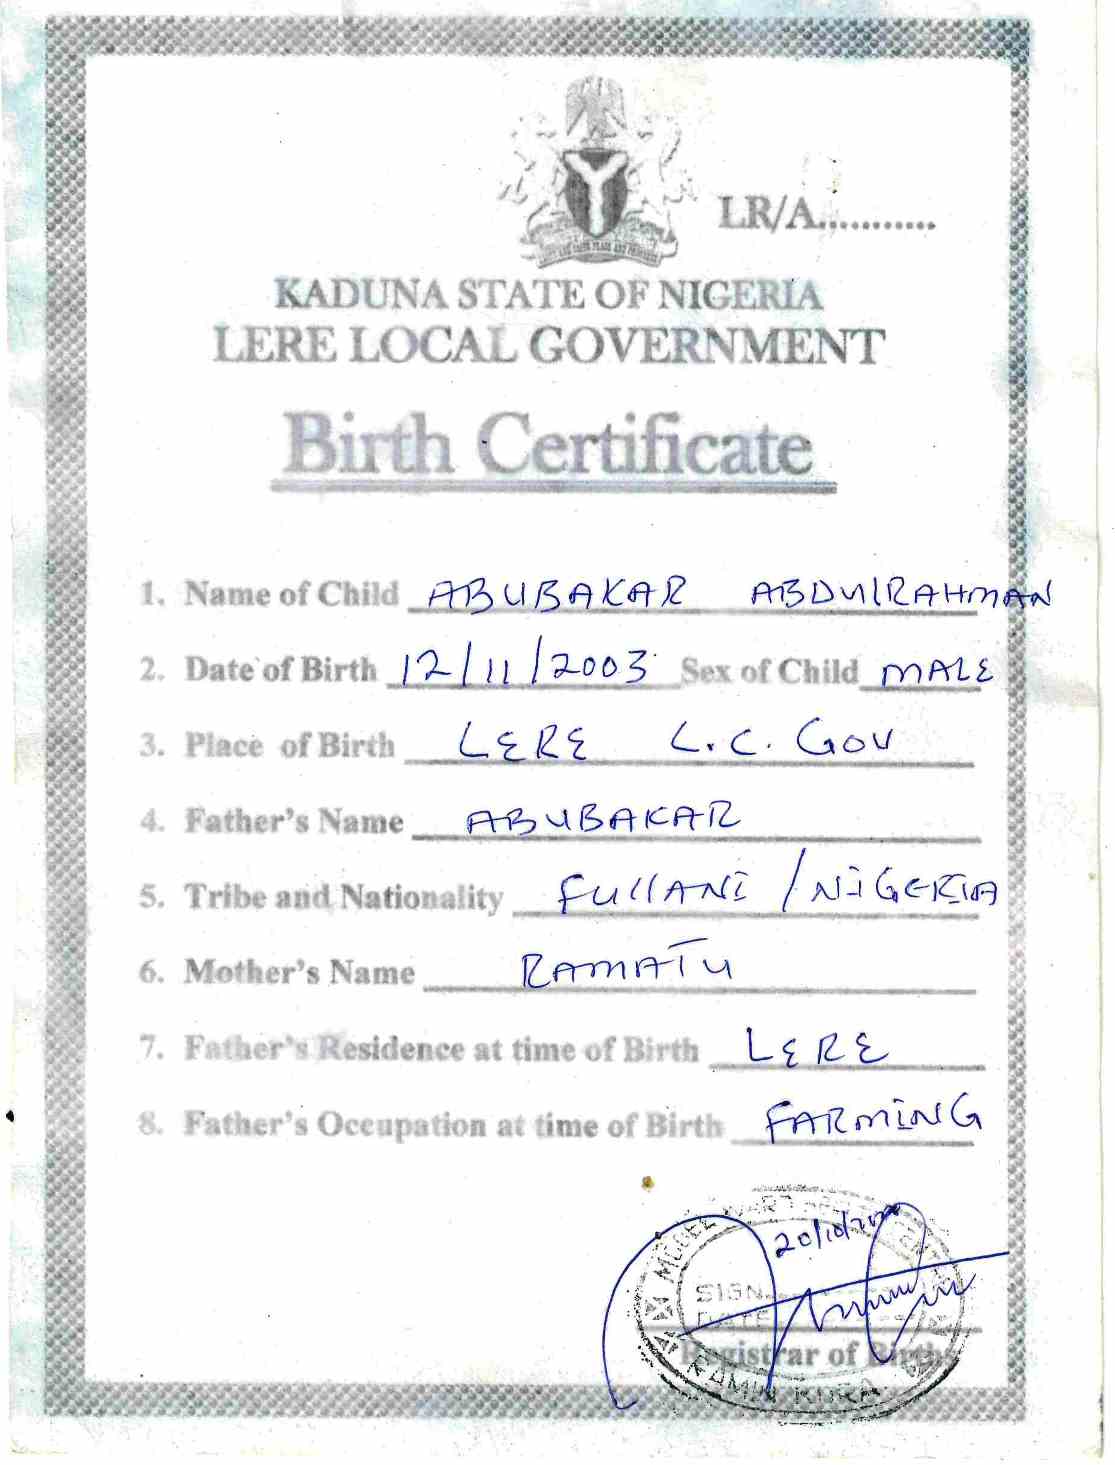 LR/A...........
KADUNA STATE OF NIGERIA
LERE LOCAL GOVERNMENT
Birth Certificate
1. Name of Child ABUBAKAR ABDULRAHMAN
2. Date of Birth 12/11/2003 Sex of Child MALE
3. Place of Birth LERE L.C. GOV
4. Father's Name ABUBAKAR
5. Tribe and Nationality FULLANI / NIGERIA
6. Mother's Name RAMATU
7. Father's Residence at time of Birth LERE
8. Father's Occupation at time of Birth FARMING
MODEL
20/10/
SIGN
DATE
Registrar of Births
RAMIN KURA